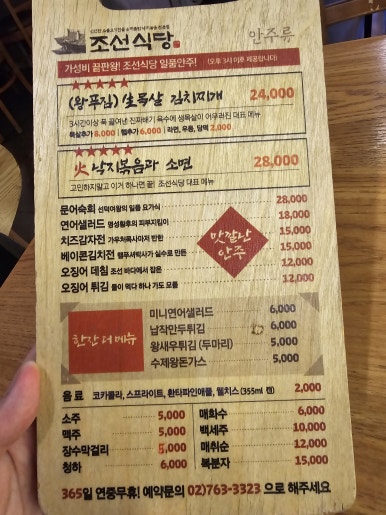 조선식당
안주류
가성비 끝판왕! 조선식당 일품안주! (오후 3시 이후 제공됩니다)
★★★★★
(왕푸짐) 生목살 김치찌개 24,000
3시간이상 푹 끓여낸 진짜배기 육수에 생목살이 어우러진 대표 메뉴
목살추가 8,000 햄추가 6,000 | 라면, 우동, 당면 2,000
★★★★★
火낙지볶음과 소면 28,000
고민하지말고 이거 하나면 끝! 조선식당 대표 메뉴
문어숙회 선덕여왕의 일품 요가식 28,000
연어샐러드 명성황후의 피부지킴이 18,000
치즈감자전 가우처족사마저 반한 15,000
베이컨김치전 웰푸셔박사가 실수로 만든 15,000
오징어 데침 조선 바다에서 잡은 12,000
오징어 튀김 둘이 먹다 하나 가도 모를 12,000
맛깔난
안주
한잔 더 메뉴
미니연어샐러드 6,000
납작만두튀김 6,000
왕새우튀김 (두마리) 5,000
수제왕돈가스 5,000
음료 코카콜라, 스프라이트, 환타파인애플, 웰치스 (355ml 캔) 2,000
소주 5,000
맥주 5,000
장수막걸리 5,000
청하 6,000
매화수 6,000
백세주 10,000
매취순 12,000
복분자 15,000
365일 연중무휴! 예약문의 02)763-3323 으로 해주세요